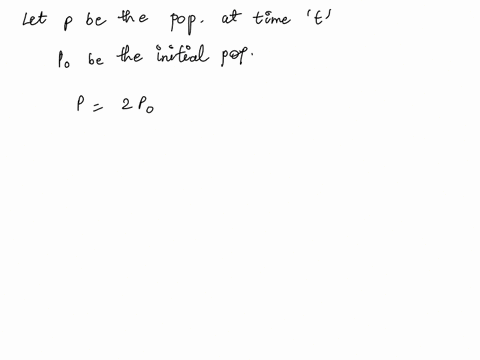 Let P be the pop. at time 't'
P₀ be the initial pop.
P = 2P₀